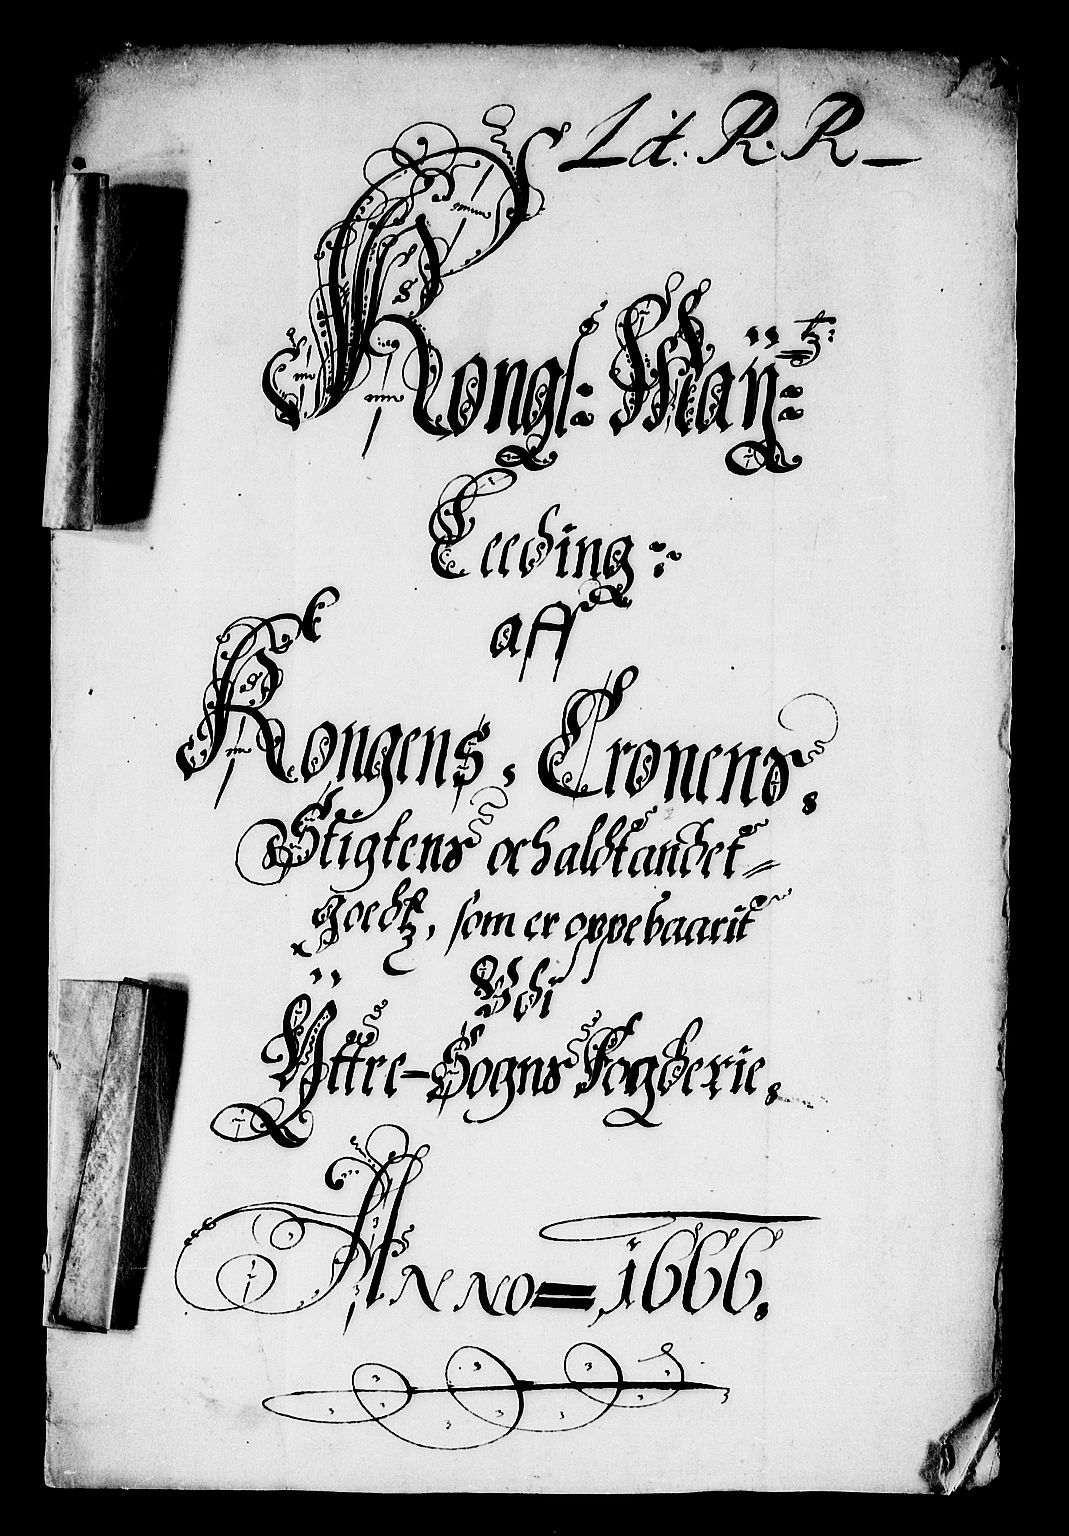 Lit: R. R
Kongl: Maÿtz:
Teeding:
aff
Kongens, Cronens,
Stigtens och aldt andet=
goedtz, som er oppebaarit
Vdi
Ÿttre-Sogns Fogderie,
Anno = 1666.